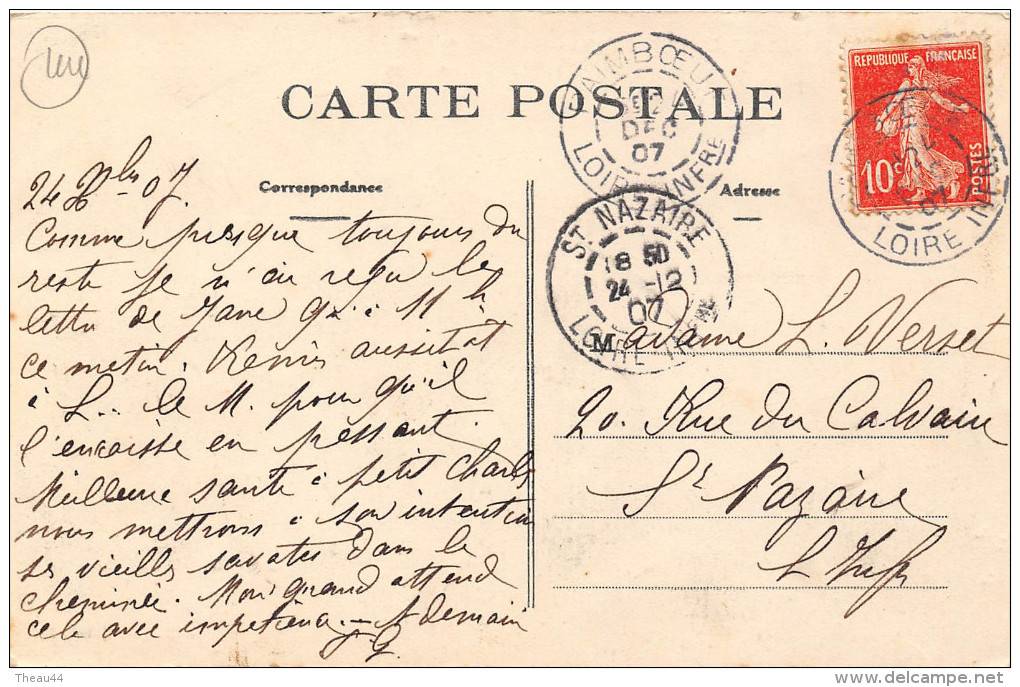 CARTE POSTALE
Correspondance
Adresse
REPUBLIQUE FRANÇAISE
10c
POSTES
LOIRE INFRE
PAIMBŒUF
DEC
07
LOIRE INFRE
ST NAZAIRE
18 50
24 -12
07
LOIRE INFRE
24 Xbre 07.
Comme presque toujours du
reste je n'ai reçu la
lettre de Jane qu'à 11 h
ce matin. Remis aussitôt
à L... le M. pour qu'il
l'encaisse en passant.
Meilleure santé à petit Charles
nous mettrons à son intention
ses vieilles savates dans la
cheminée. Mon grand attend
cela avec impatience. — A demain
J. G.
Madame L. Verset
20. Rue du Calvaire
St Nazaire
L Infre
Theau44
delcampe.net